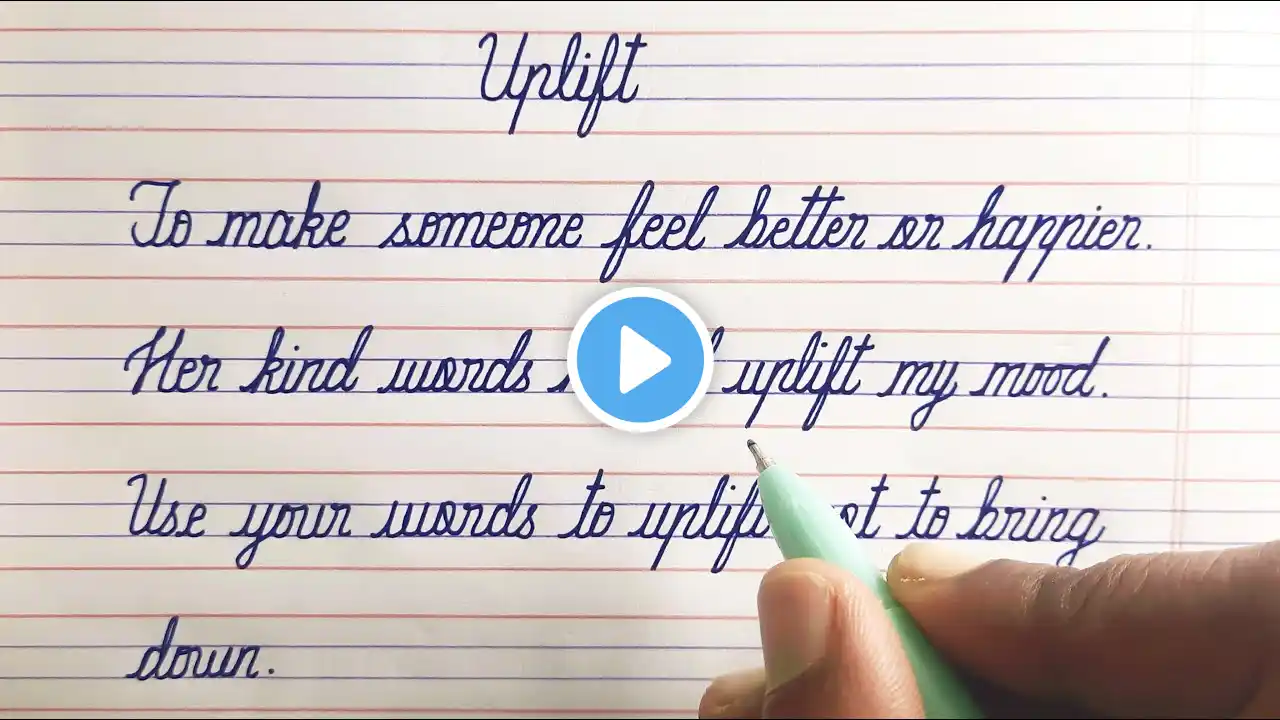 Uplift
To make someone feel better or happier.
Her kind words uplift my mood.
Use your words to uplift to bring
down.